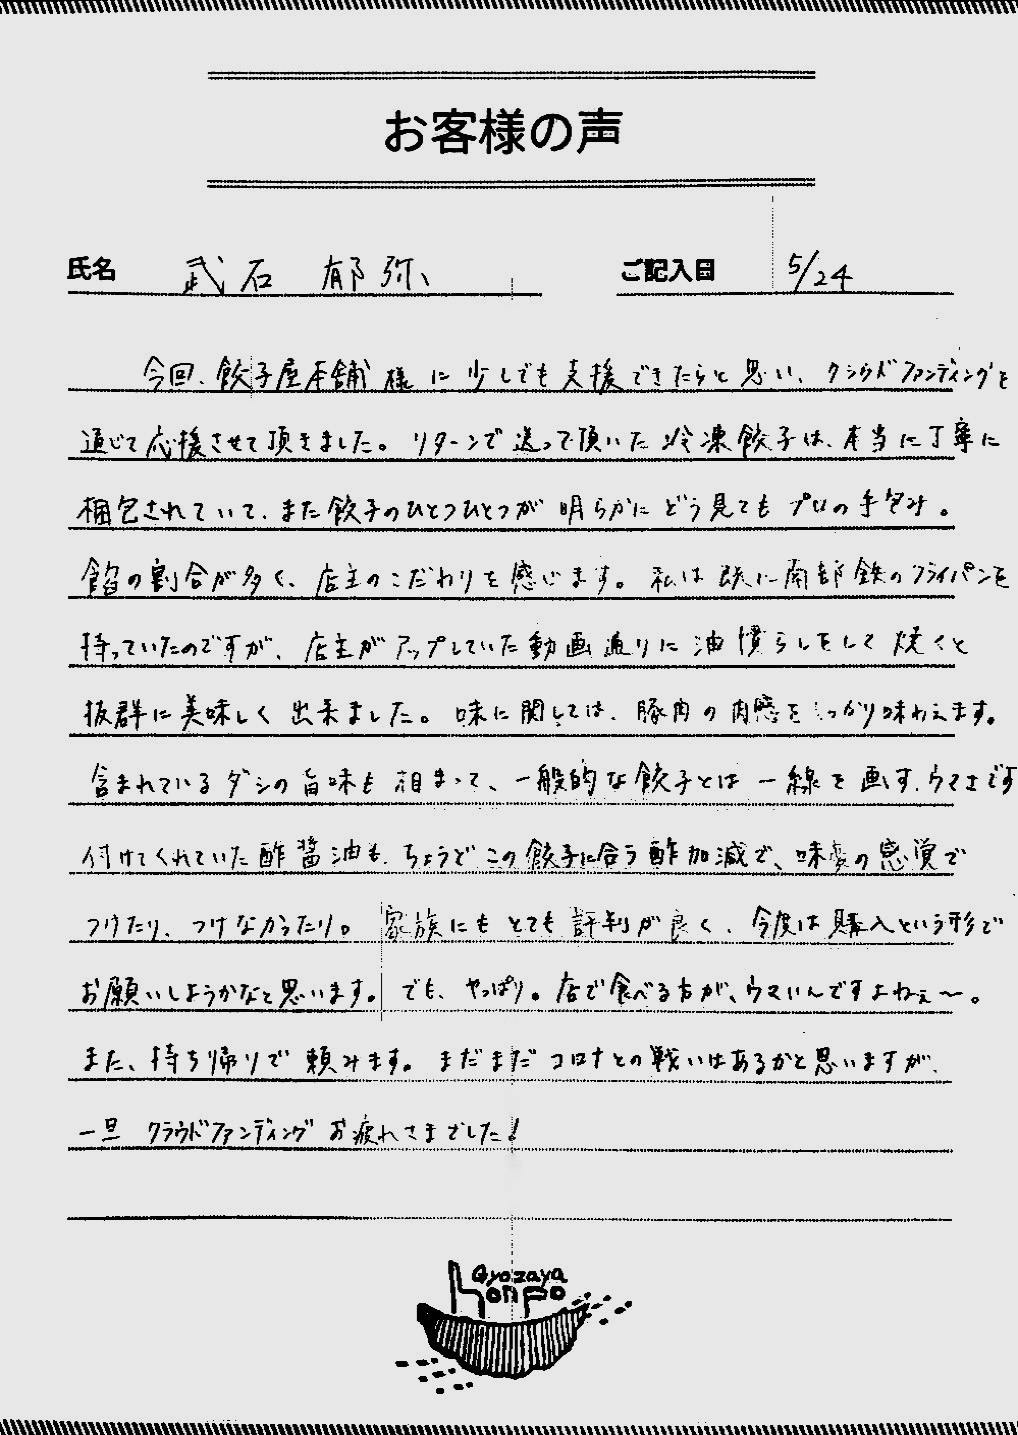 お客様の声
氏名 武石 郁弥 ご記入日 5/24
今回、餃子屋本舗様に少しでも支援できたらと思い、クラウドファンディングを
通じて応援させて頂きました。リターンで送って頂いた冷凍餃子は、本当に丁寧に
梱包されていて、また餃子のひとつひとつが明らかにどう見てもプロの手包み。
餡の割合が多く、店主のこだわりを感じます。私は既に南部鉄のフライパンを
持っていたのですが、店主がアップしていた動画通りに油慣らしをして焼くと
抜群に美味しく出来ました。味に関しては、豚肉の肉感をしっかり味わえます。
含まれているダシの旨味も相まって、一般的な餃子とは一線を画す、ウマさです
付けてくれていた酢醤油も、ちょうどこの餃子に合う酢加減で、味変の感覚で
つけたり、つけなかったり。家族にもとても評判が良く、今度は購入という形で
お願いしようかなと思います。でも、やっぱり。店で食べる方が、ウマいんですよねぇ〜。
また、持ち帰りで頼みます。まだまだコロナとの戦いはあるかと思いますが、
一旦クラウドファンディングお疲れさまでした!
Gyozaya
honpo